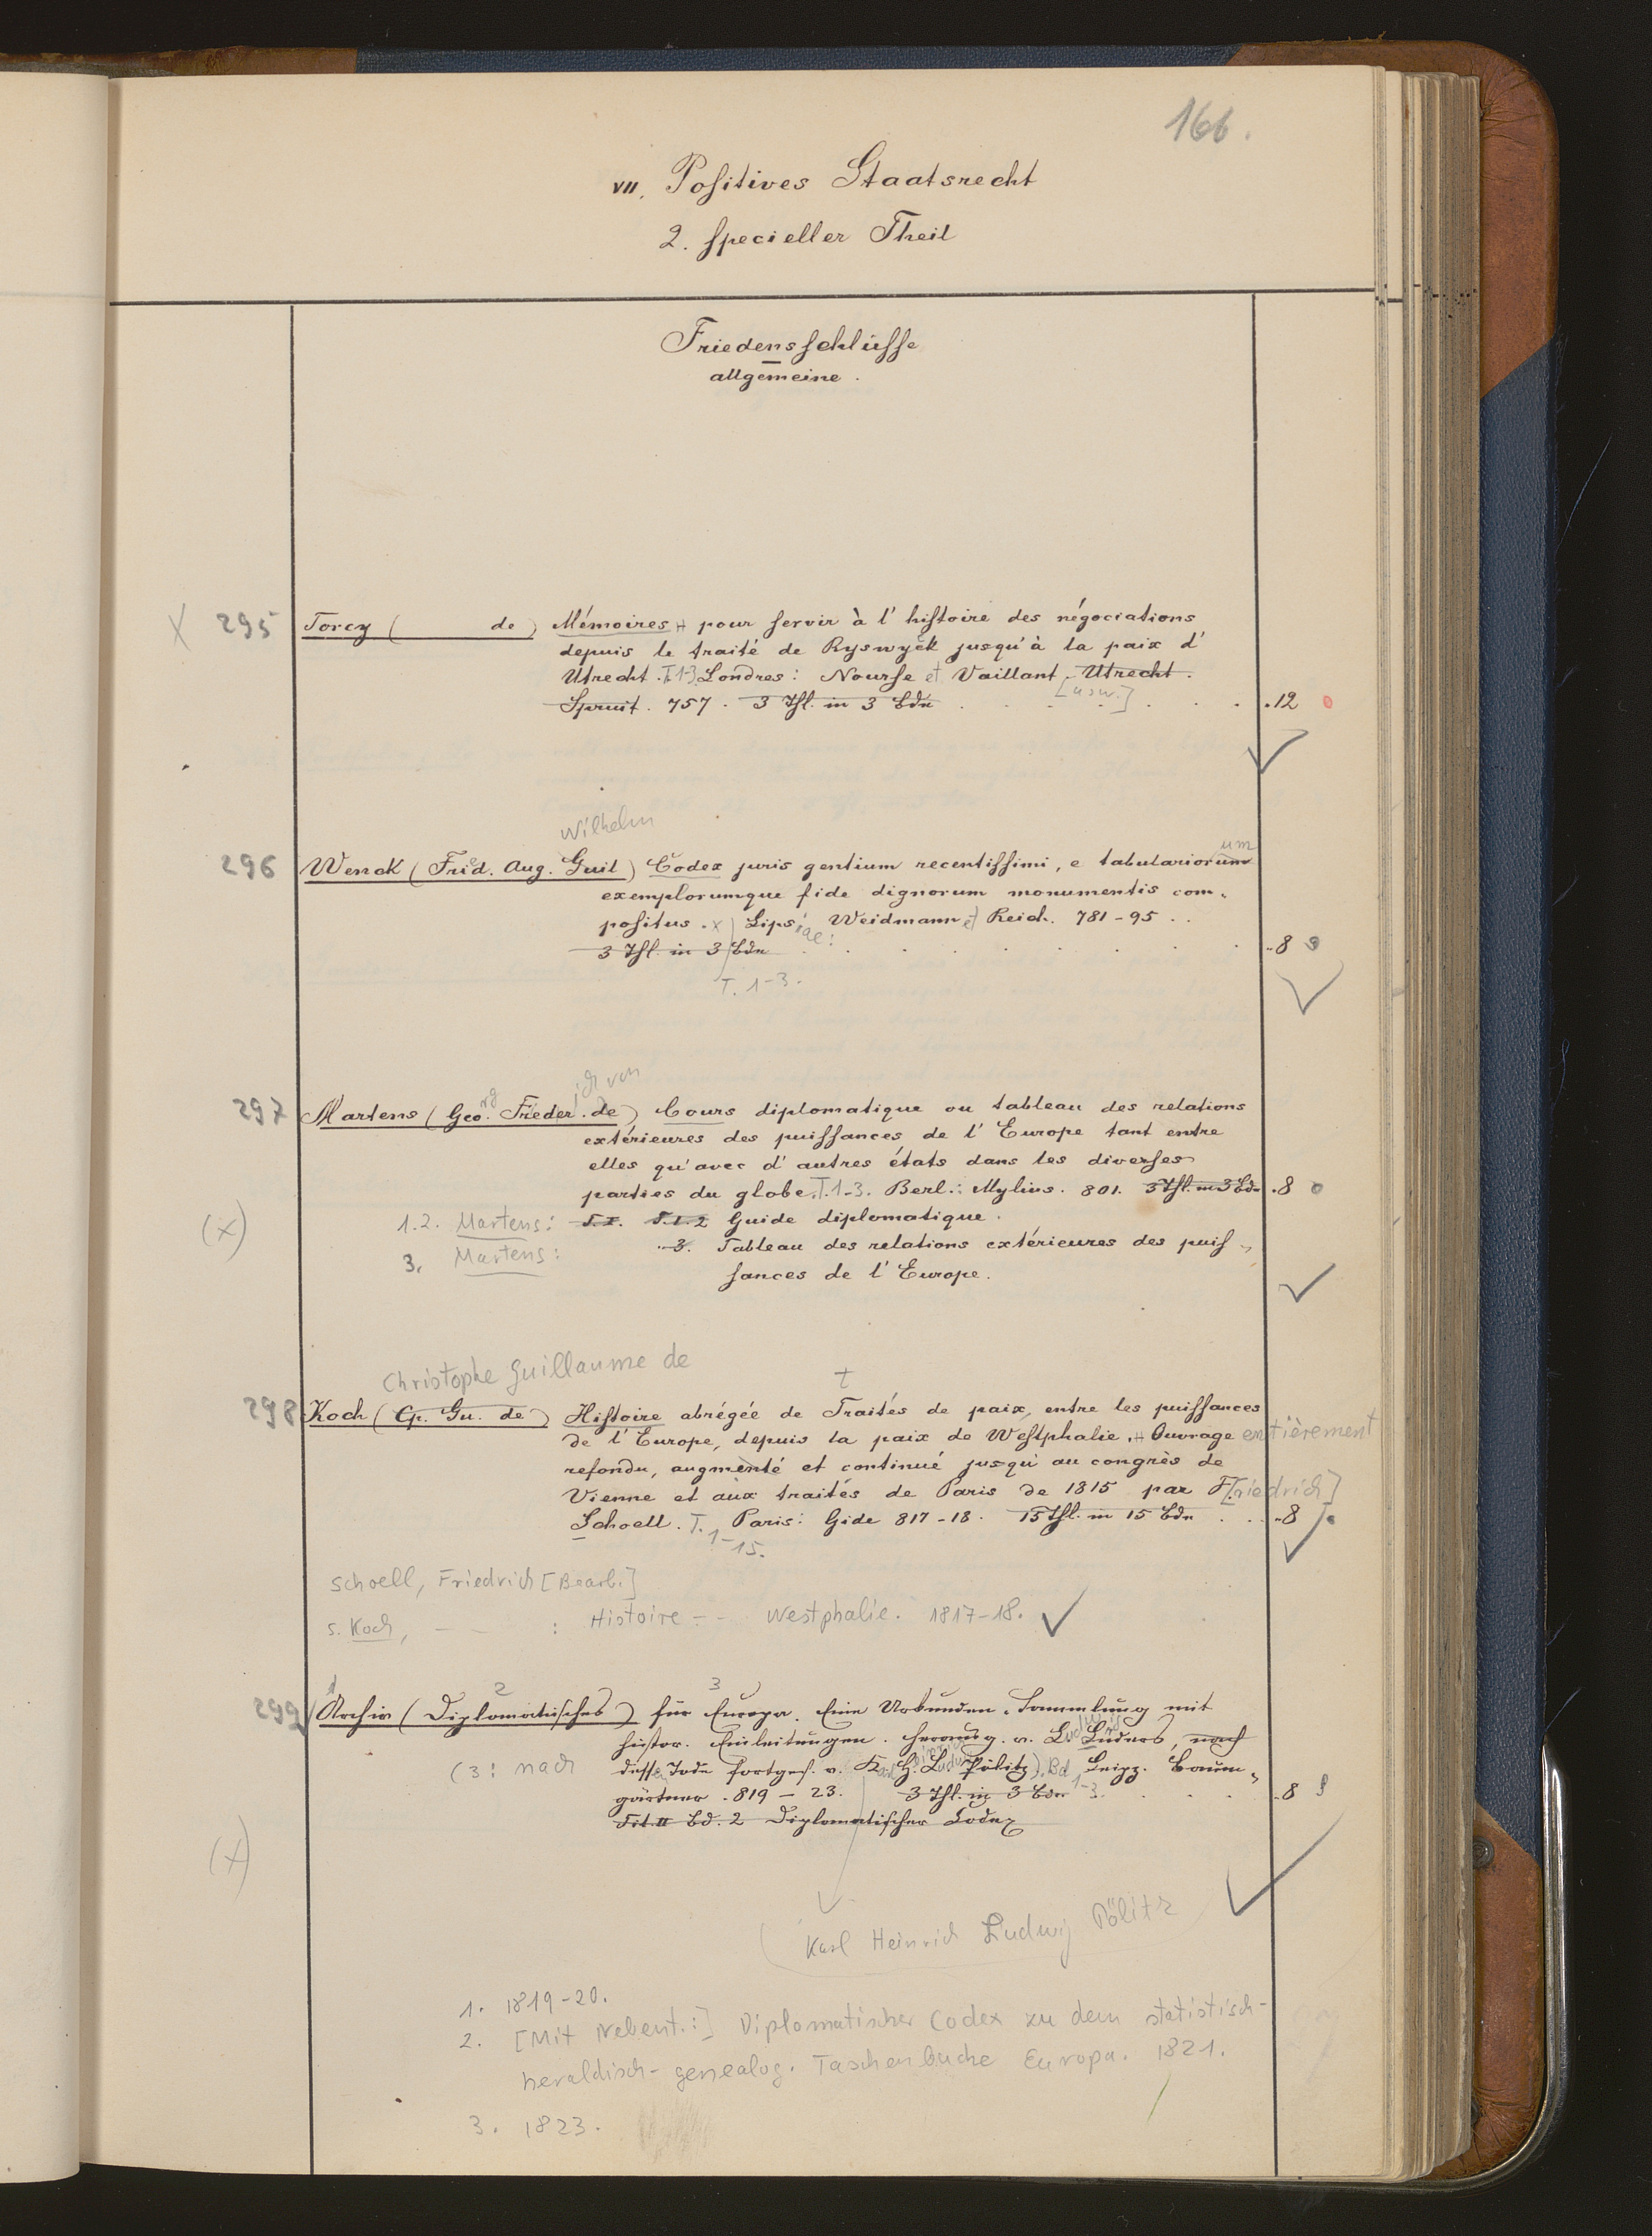 166.
VII. Positives Staatsrecht
2. specieller Theil
Friedensschlüsse
allgemeine.
X 295 Torcy ( de) Mémoires pour servir à l'histoire des négociations
depuis le traité de Ryswyck jusqu'à la paix d'
Utrecht. T. 1-3. Londres: Nourse et Vaillant. Utrecht.
[usw.]
Spruit. 757. 3 Thl. in 3 Bdn . . . . . . 12 0
Wilhelm
um
296 Wenck (Fried. Aug. Guil) Codex juris gentium recentissimi, e tabulariorum
exemplorumque fide dignorum monumentis com-
positus. x) Lipsiae: Weidmann et Reich. 781-95 . .
3 Thl. in 3 Bdn . . . . . . 8
T. 1-3.
rg ich von
297 Martens (Geo. Frieder. de) Cours diplomatique ou tableau des relations
extérieures des puissances de l'Europe tant entre
elles qu'avec d'autres états dans les diverses
parties du globe. T. 1-3. Berl.: Mylius. 801. 3 Thl. in 3 Bdn . 8 0
(x) 1.2. Martens: T.I. T.1.2 Guide diplomatique.
3. Martens: 3. Tableau des relations extérieures des puis-
sances de l'Europe.
Christophe Guillaume de
t
298 Koch (Cp. Gu. de) Histoire abrégée de Traités de paix, entre les puissances
de l'Europe, depuis la paix de Westphalie. Ouvrage entièrement
refondu, augmenté et continué jusqu'au congrès de
Vienne et aux traités de Paris de 1815 par F[riedrich]
Schoell. T. 1-15. Paris: Gide 817-18. 15 Thl. in 15 Bdn . . 8
Schoell, Friedrich [Bearb.]
s. Koch, – – : Histoire – – Westphalie. 1817-18.
1 2 3
299 Archiv (Diplomatisches) für Europa. Eine Urkunden-Sammlung mit
histor. Einleitungen. herausg. v. Ludwig Lüders, nach
(3: nach dessen Tode fortges. v. Karl H. Ludw. Pölitz). Bd 1-3. Leipz. Baum-
gärtner. 819 – 23. 3 Thl. in 3 Bdn . . . . 8
Tit. II Bd. 2 Diplomatischer Codex
(x)
(Karl Heinrich Ludwig Pölitz
1. 1819-20.
2. [Mit Nebent.:] Diplomatischer Codex zu dem statistisch-
heraldisch-genealog. Taschenbuche Europa. 1821.
3. 1823.